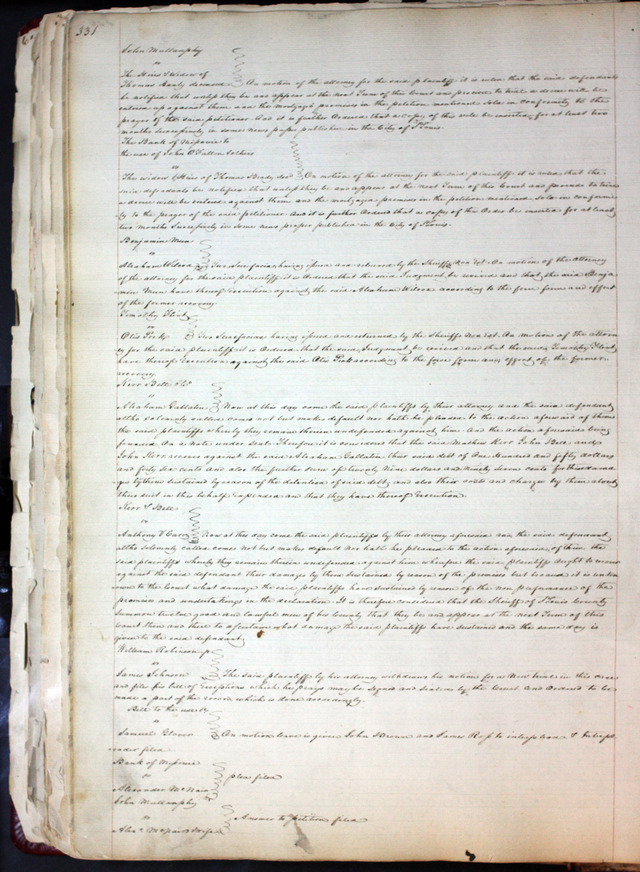 331
John Mullanphy
vs
The Heirs & Widow of
Thomas Brady deceased On motion of the attorney for the said plaintiff it is ordered that the said defendants
be notified that unless they be and appear at the next Term of this Court and proceed to trial a decree will be
entered up against them and the mortgaged premises in the petition mentioned sold in conformity to the
prayer of the said petitioner. And it is further Ordered that a copy of this order be inserted for at least two
months successively in some news paper published in the City of St Louis
The Bank of Missouri to
the use of John O'Fallon & others
vs
The widow & Heirs of Thomas Brady decd On motion of the attorney for the said plaintiff it is ordered that the
said defendants be notified that unless they be and appear at the next Term of this Court and proceed to trial
a decree will be entered against them and the mortgaged premises in the petition mentioned sold in conform
ity to the prayer of the said petitioner. And it is further Ordered that a copy of this Order be inserted for at least
two months successively in some news paper published in the City of St Louis.
Benjamin Munn
vs
Abraham Wilson Two Scire facias having issued and returned by the Sheriff Non Est. On motion of the attorney
of the attorney for the said plaintiff it is Ordered that the said Judgment be revived and that the said Benja
min Munn have thereof execution against the said Abraham Wilson according to the force form and effect
of the former recovery
Timothy Flint
vs
Otis Peck Two Scire facias having issued and returned by the Sheriff Non Est. On motion of the attorn
ey for the said plaintiff it is Ordered that the said Judgment be revived and that the said Timothy Flint
have thereof Execution against the said Otis Peck according to the force form and effect of the former
recovery
Kerr Bell & Co
vs
Abraham Gallatin Now at this day come the said plaintiffs by their attorney and the said defendant
altho solemnly called comes not but makes default nor hath he pleaded to the action aforesaid of them
the said plaintiffs whereby they remain therein undefended against him. And the action aforesaid being
founded On a Note under Seal. Therefore it is considered that the said Mathew Kerr John Bell and
John Kerr recover against the said Abraham Gallatin their said debt of One Hundred and fifty dollars
and forty six cents and also the further sum of twenty Nine dollars and Ninety seven cents for their dama
ges by them sustained by reason of the detention of said debt, and also their costs and charges by them about
their suit in this behalf expended and that they have thereof Execution.
Kerr & Bell
vs
Anthony V Casey Now at this day come the said plaintiffs by their attorney aforesaid and the said defendant
altho solemnly called comes not but makes default nor hath he pleaded to the action aforesaid of them the
said plaintiffs whereby they remain therein undefended against him wherefore the said plaintiffs ought to recover
against the said defendant their damages by them sustained by reason of the premises but because it is unknown
to the Court what damage the said plaintiffs have sustained by reason of the non performance of the
promises and undertakings in the declaration. It is therefore considered that the Sheriff of St Louis County
summon twelve good and lawful men of his County that they be and appear at the next Term of this
Court then and there to ascertain what damage the said plaintiffs have sustained and the same day is
given to the said defendant
William Robinson
vs
James Johnson The said plaintiff by his attorney withdraws his motion for a New trial in this case
and files his bill of Exceptions which he prays may be signed and sealed by the Court and Ordered to be
made a part of the record, which is done accordingly.
Bell to the use &c
vs
Samuel Glover On motion leave is given John Brown and James Ross to interplead &
filed
Bank of Missouri
vs plea filed
Alexander McNair
John Mullanphy
vs Answer to petition filed
Alexr McNair & Wife